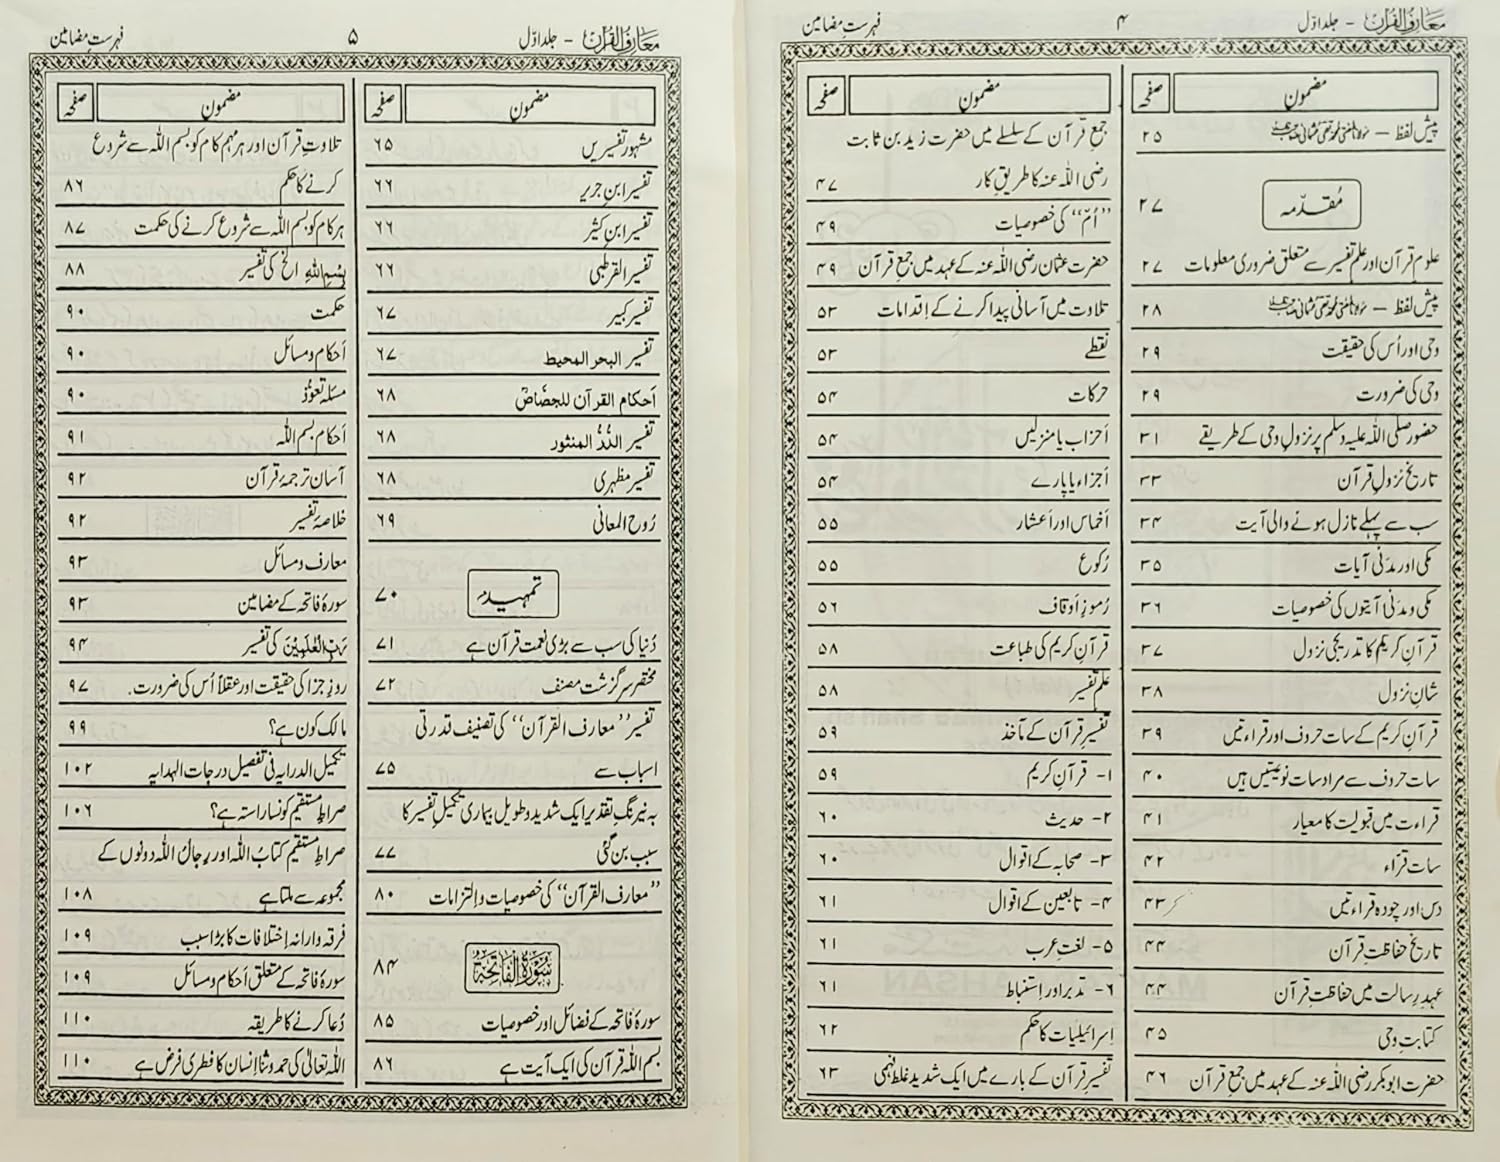 معارف القرآن - جلد اوّل
۴
فہرستِ مضامین
مضمون صفحہ
پیش لفظ — مولانا مفتی محمد تقی عثمانی ۲۵
مُقدّمہ ۲۷
علومِ قرآن اور علمِ تفسیر سے متعلق ضروری معلومات ۲۷
پیش لفظ — مولانا مفتی محمد تقی عثمانی ۲۸
وحی اور اُس کی حقیقت ۲۹
وحی کی ضرورت ۲۹
حضور صلی اللہ علیہ وسلم پر نزولِ وحی کے طریقے ۳۱
تاریخ نزولِ قرآن ۳۳
سب سے پہلے نازل ہونے والی آیت ۳۴
مکی اور مدنی آیات ۳۵
مکی و مدنی آیتوں کی خصوصیات ۳۶
قرآنِ کریم کا تدریجی نزول ۳۷
شانِ نزول ۳۸
قرآنِ کریم کے سات حروف اور قراءتیں ۳۹
سات حروف سے مراد سات نوعیتیں ہیں ۴۰
قراءت میں قبولیت کا معیار ۴۱
سات قرّاء ۴۲
دس اور چودہ قراءتیں ۴۳
تاریخ حفاظتِ قرآن ۴۴
عہدِ رسالت میں حفاظتِ قرآن ۴۴
کتابتِ وحی ۴۵
حضرت ابوبکر رضی اللہ عنہ کے عہد میں جمعِ قرآن ۴۶
مضمون صفحہ
جمعِ قرآن کے سلسلے میں حضرت زید بن ثابت
رضی اللہ عنہ کا طریقِ کار ۴۷
’’اُمّ‘‘ کی خصوصیات ۴۹
حضرت عثمان رضی اللہ عنہ کے عہد میں جمعِ قرآن ۴۹
تلاوت میں آسانی پیدا کرنے کے اِقدامات ۵۳
نقطے ۵۳
حرکات ۵۴
اَحزاب یا منزلیں ۵۴
اَجزاء یا پارے ۵۴
اَخماس اور اَعشار ۵۵
رُکوع ۵۵
رُموزِ اَوقاف ۵۶
قرآنِ کریم کی طباعت ۵۸
علمِ تفسیر ۵۸
تفسیرِ قرآن کے مآخذ ۵۹
۱- قرآنِ کریم ۵۹
۲- حدیث ۶۰
۳- صحابہ کے اقوال ۶۰
۴- تابعین کے اقوال ۶۱
۵- لغتِ عرب ۶۱
۶- تدبر اور اِستنباط ۶۱
اِسرائیلیات کا حکم ۶۲
تفسیرِ قرآن کے بارے میں ایک شدید غلط فہمی ۶۳
معارف القرآن - جلد اوّل
۵
فہرستِ مضامین
مضمون صفحہ
مشہور تفسیریں ۶۵
تفسیر ابنِ جریر ۶۶
تفسیر ابنِ کثیر ۶۶
تفسیر القرطبی ۶۶
تفسیر کبیر ۶۷
تفسیر البحر المحیط ۶۷
اَحکام القرآن للجصّاصؒ ۶۸
تفسیر الدُّرُّ المنثور ۶۸
تفسیر مظہری ۶۸
رُوح المعانی ۶۹
تمہید ۷۰
دُنیا کی سب سے بڑی نعمت قرآن ہے ۷۱
مختصر سرگزشت مصنف ۷۲
تفسیر ’’معارف القرآن‘‘ کی تصنیف قدرتی
اسباب سے ۷۵
بہ نیرنگِ تقدیر ایک شدید و طویل بیماری تکمیلِ تفسیر کا
سبب بن گئی ۷۷
’’معارف القرآن‘‘ کی خصوصیات و اِلتزامات ۸۰
سُوْرَةُ الْفَاتِحَةِ ۸۴
سورۂ فاتحہ کے فضائل اور خصوصیات ۸۵
بسم اللہ قرآن کی ایک آیت ہے ۸۶
مضمون صفحہ
تلاوتِ قرآن اور ہر مہم کام کو بسم اللہ سے شروع
کرنے کا حکم ۸۶
ہر کام کو بسم اللہ سے شروع کرنے کی حکمت ۸۷
بِسْمِ اللّٰهِ الخ کی تفسیر ۸۸
حکمت ۹۰
اَحکام و مسائل ۹۰
مسئلہ تعوّذ ۹۰
اَحکام بسم اللہ ۹۱
آسان ترجمۂ قرآن ۹۲
خلاصۂ تفسیر ۹۲
معارف و مسائل ۹۳
سورۂ فاتحہ کے مضامین ۹۳
رَبِّ الْعٰلَمِیْنَ کی تفسیر ۹۴
روزِ جزا کی حقیقت اور عقلاً اُس کی ضرورت. ۹۷
مالک کون ہے؟ ۹۹
تکمیل الدرایہ فی تفصیل درجات الہدایہ ۱۰۲
صراطِ مستقیم کونسا راستہ ہے؟ ۱۰۶
صراطِ مستقیم کتابُ اللہ اور رِجالُ اللہ دونوں کے
مجموعہ سے ملتا ہے ۱۰۸
فرقہ وارانہ اِختلافات کا بڑا سبب ۱۰۹
سورۂ فاتحہ کے متعلق اَحکام و مسائل ۱۰۹
دُعا کرنے کا طریقہ ۱۱۰
اللہ تعالیٰ کی حمد و ثنا اِنسان کا فطری فرض ہے ۱۱۰